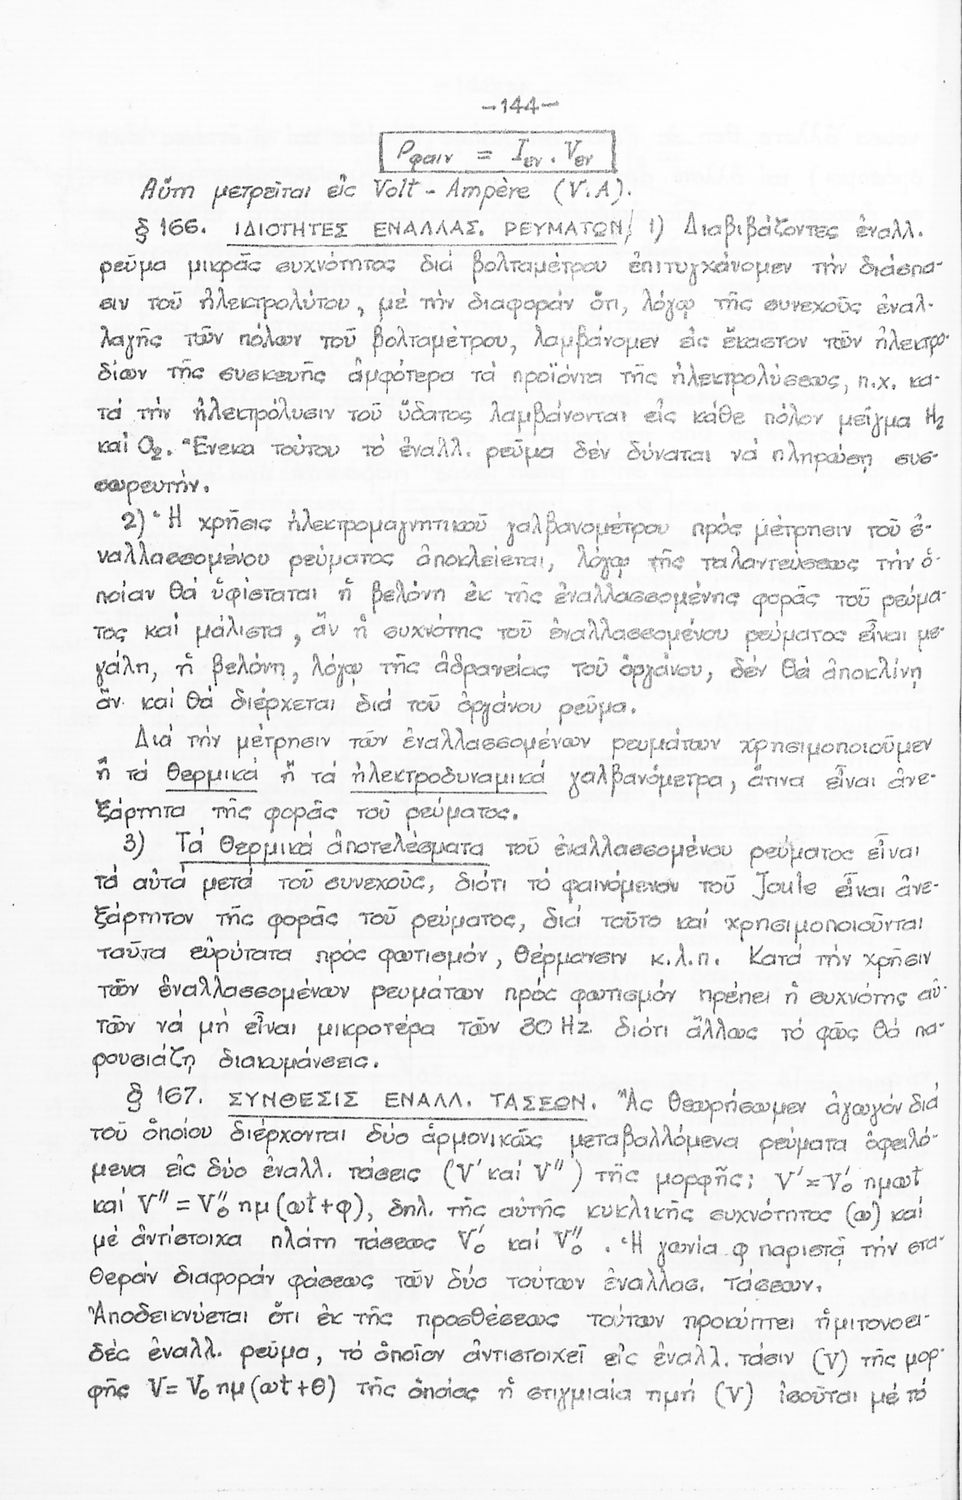 -144-
Pφαιν = Iεν . Vεν
Αὕτη μετρεῖται εἰς Volt - Ampère (V.A).
§ 166. ΙΔΙΟΤΗΤΕΣ ΕΝΑΛΛΑΣ. ΡΕΥΜΑΤΩΝ/ 1) Διαβιβάζοντες ἐναλλ.
ρεῦμα μικρᾶς συχνότητος διά βολταμέτρου ἐπιτυγχάνομεν τήν διάσπα-
σιν τοῦ ἠλεκτρολύτου, μέ τήν διαφοράν ὅτι, λόγῳ τῆς συνεχοῦς ἐναλ-
λαγῆς τῶν πόλων τοῦ βολταμέτρου, λαμβάνομεν εἰς ἕκαστον τῶν ἠλεκτρο-
δίων τῆς συσκευῆς ἀμφότερα τά προϊόντα τῆς ἠλεκτρολύσεως, π.χ. κα-
τά τήν ἠλεκτρόλυσιν τοῦ ὕδατος λαμβάνονται εἰς κάθε πόλον μεῖγμα H₂
καί O₂. Ἕνεκα τούτου τό ἐναλλ. ρεῦμα δέν δύναται νά πληρώσῃ συσ-
σωρευτήν.
2) Ἡ χρῆσις ἠλεκτρομαγνητικοῦ γαλβανομέτρου πρός μέτρησιν τοῦ ἐ-
ναλλασσομένου ρεύματος ἀποκλείεται, λόγῳ τῆς ταλαντεύσεως τήν ὁ-
ποίαν θά ὑφίσταται ἡ βελόνη ἐκ τῆς ἐναλλασσομένης φορᾶς τοῦ ρεύμα-
τος καί μάλιστα, ἄν ἡ συχνότης τοῦ ἐναλλασσομένου ρεύματος εἶναι με-
γάλη, ἡ βελόνη, λόγῳ τῆς ἀδρανείας τοῦ ὀργάνου, δέν θά ἀποκλίνῃ
ἄν καί θά διέρχεται διά τοῦ ὀργάνου ρεῦμα.
Διά τήν μέτρησιν τῶν ἐναλλασσομένων ρευμάτων χρησιμοποιοῦμεν
ἤ τά θερμικά ἤ τά ἠλεκτροδυναμικά γαλβανόμετρα, ἅτινα εἶναι ἀνε-
ξάρτητα τῆς φορᾶς τοῦ ρεύματος.
3) Τά θερμικά ἀποτελέσματα τοῦ ἐναλλασσομένου ρεύματος εἶναι
τά αὐτά μετά τοῦ συνεχοῦς, διότι τό φαινόμενον τοῦ Joule εἶναι ἀνε-
ξάρτητον τῆς φορᾶς τοῦ ρεύματος, διά τοῦτο καί χρησιμοποιοῦνται
ταῦτα εὐρύτατα πρός φωτισμόν, θέρμανσιν κ.λ.π. Κατά τήν χρῆσιν
τῶν ἐναλλασσομένων ρευμάτων πρός φωτισμόν πρέπει ἡ συχνότης αὐ-
τῶν νά μή εἶναι μικροτέρα τῶν 30 Hz διότι ἄλλως τό φῶς θά πα-
ρουσιάζῃ διακυμάνσεις.
§ 167. ΣΥΝΘΕΣΙΣ ΕΝΑΛΛ. ΤΑΣΕΩΝ. Ἄς θεωρήσωμεν ἀγωγόν διά
τοῦ ὁποίου διέρχονται δύο ἁρμονικῶς μεταβαλλόμενα ρεύματα ὀφειλό-
μενα εἰς δύο ἐναλλ. τάσεις (V' καί V'') τῆς μορφῆς: V'=V'₀ ημωt
καί V''=V''₀ ημ(ωt+φ), δηλ. τῆς αὐτῆς κυκλικῆς συχνότητος (ω) καί
μέ ἀντίστοιχα πλάτη τάσεως V'₀ καί V''₀. Ἡ γωνία φ παριστᾷ τήν στα-
θεράν διαφοράν φάσεως τῶν δύο τούτων ἐναλλασ. τάσεων.
Ἀποδεικνύεται ὅτι ἐκ τῆς προσθέσεως τούτων προκύπτει ἡμιτονοει-
δές ἐναλλ. ρεῦμα, τό ὁποῖον ἀντιστοιχεῖ εἰς ἐναλλ. τάσιν (V) τῆς μορ-
φῆς V=V₀ ημ(ωt+θ) τῆς ὁποίας ἡ στιγμιαία τιμή (V) ἰσοῦται μέ τό